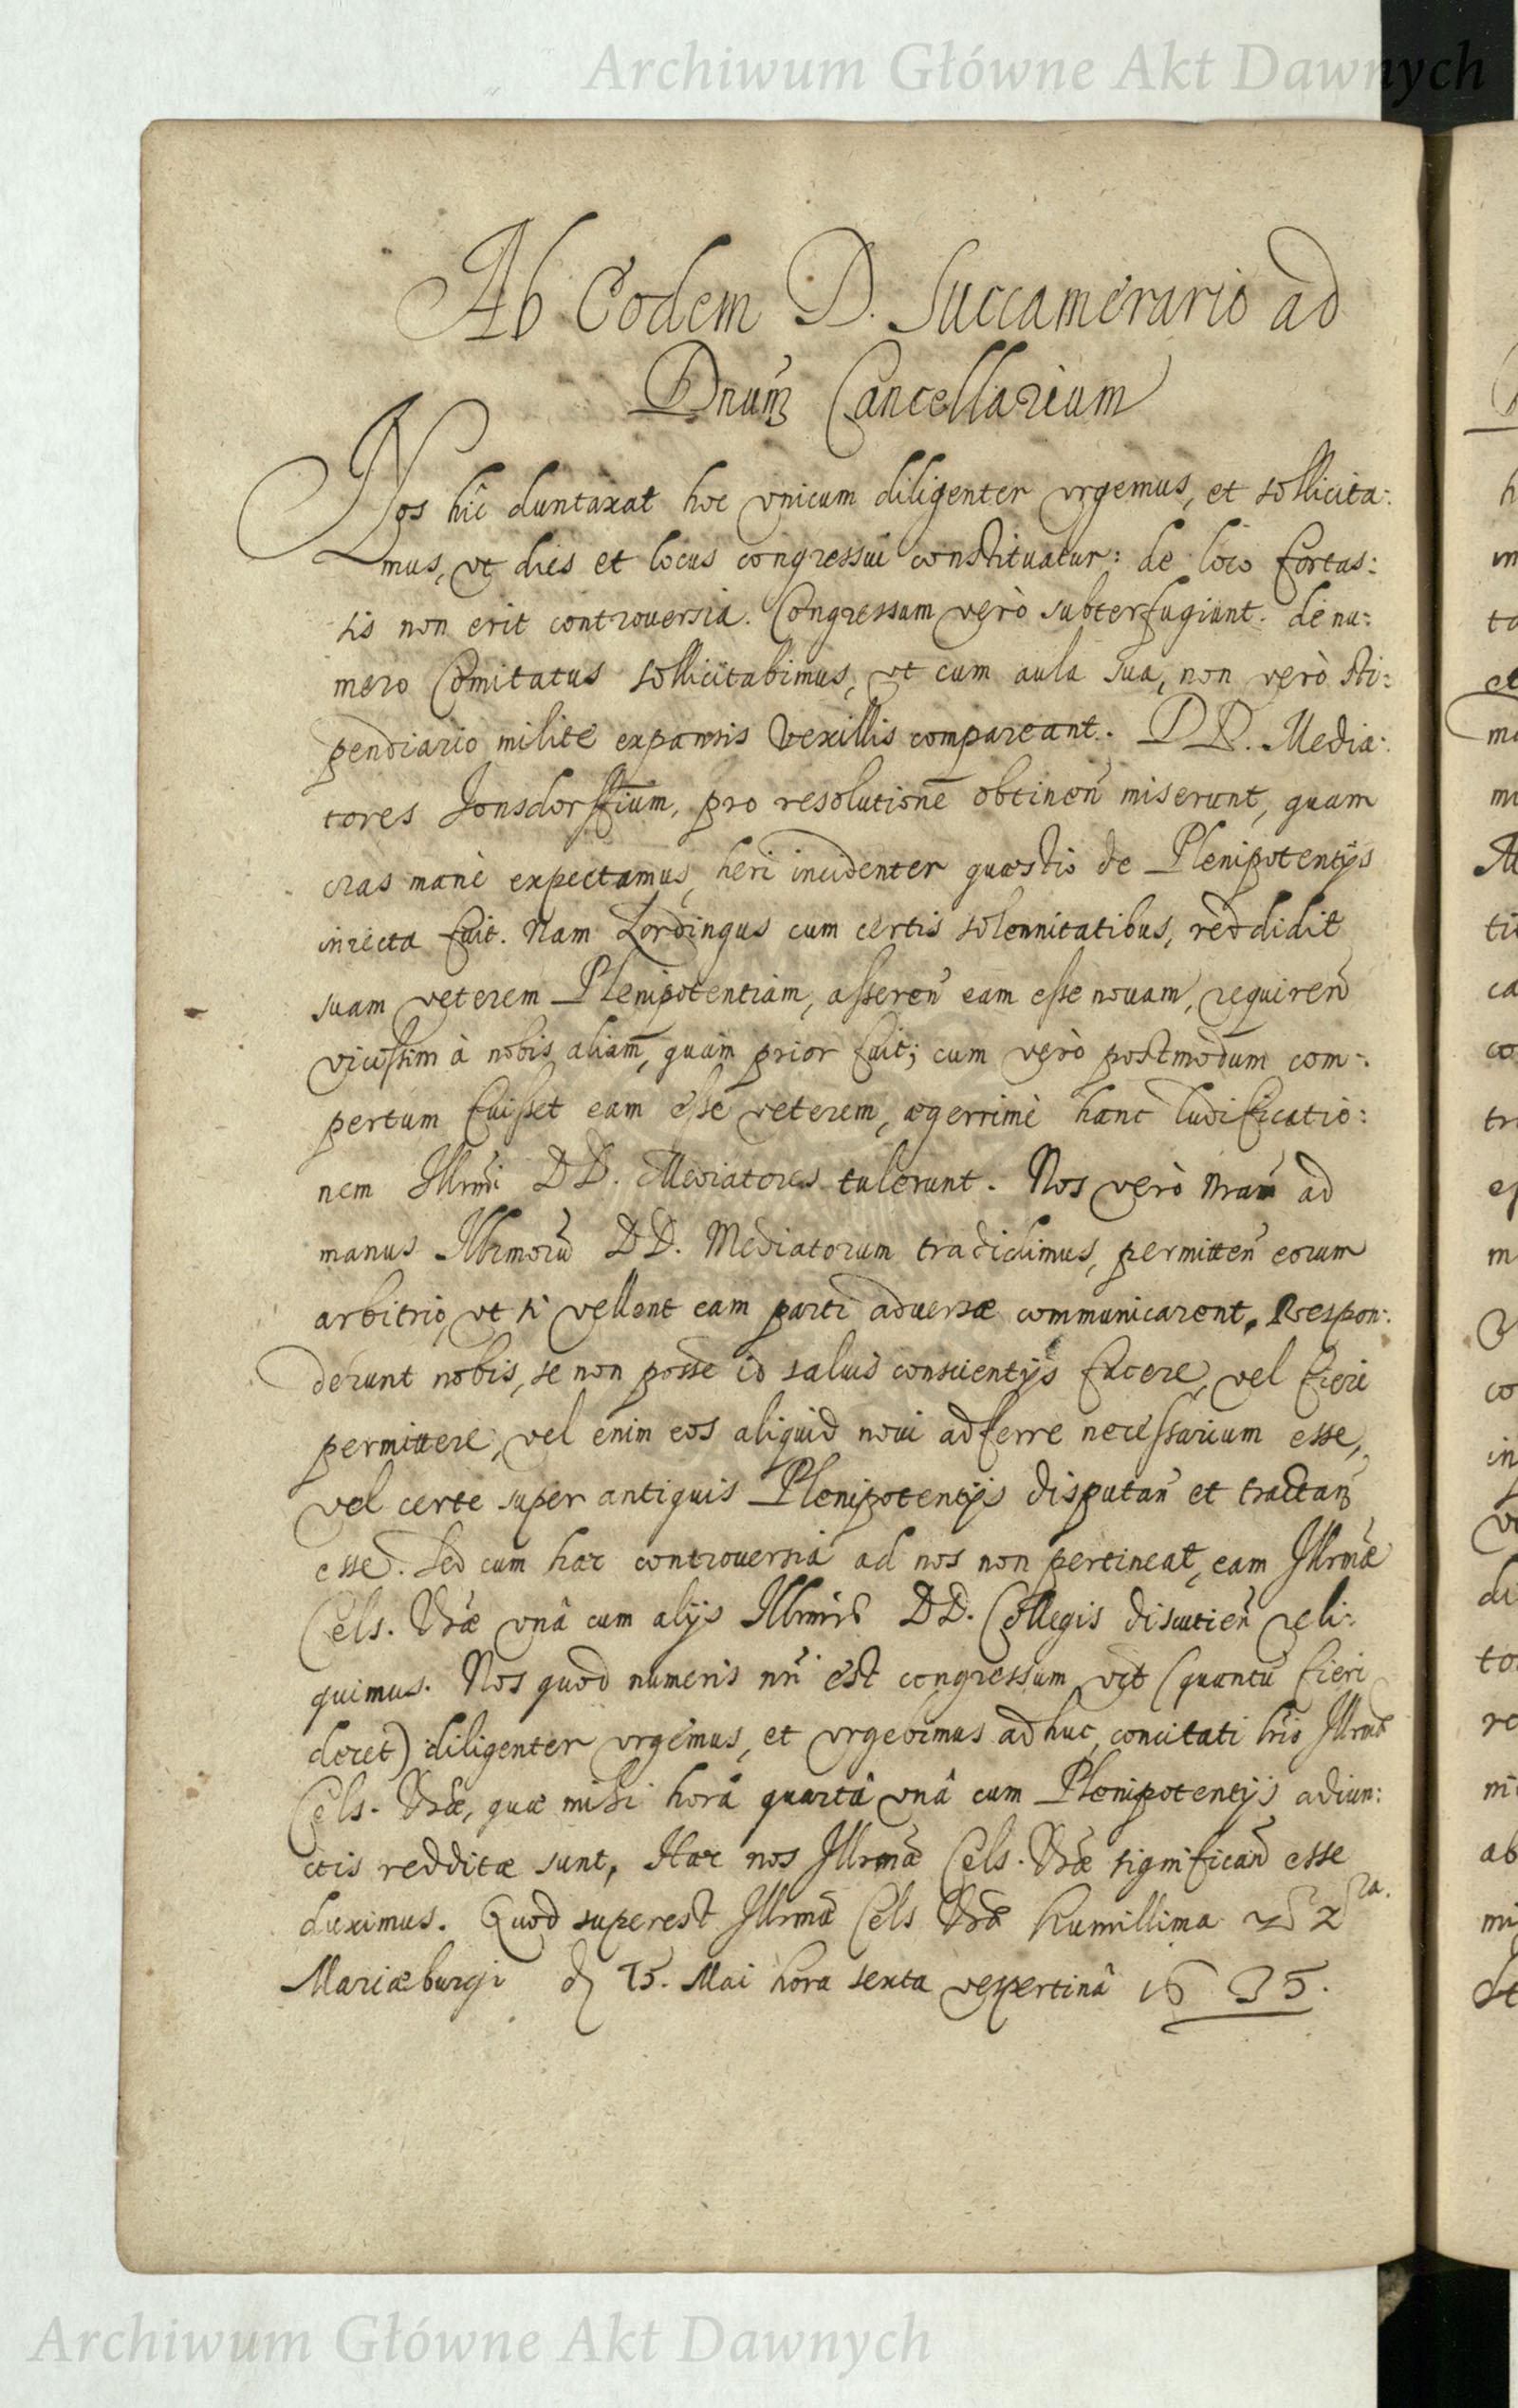 Archiwum Główne Akt Dawnych
Ab Eodem D. Succamerario ad
Dnum̃ Cancellarium
Nos hîc duntaxat hoc vnicum diligenter vrgemus, et sollicita:
mus, vt dies et locus congressui constituatur: de loco fortas:
sis non erit controuersia. Congressum verò subterfugiunt. de nu:
mero Comitatus sollicitabimus, vt cum aula sua, non verò sti:
pendiario milite expansis vexillis compareant. DD. Media:
tores Jonsdorffium, pro resolutionē obtinen̄ miserunt, quam
cras manè expectamus, heri incidenter quæstio de Plenipotentijs
iniecta fuit. Nam Lordingus cum certis solennitatibus, reddidit
suam veterem Plenipotentiam, asseren̄ eam esse nouam, requiren̄
vicissim à nobis aliam, quàm prior fuit; cum verò postmodum com:
pertum fuisset eam esse veterem, ægerrimè hanc ludificatio:
nem Illrmi DD. Mediatores tulerunt. Nos verò nram̃ ad
manus Illrmorũ DD. Mediatorum tradidimus, permitten̄ eorum
arbitrio, vt si vellent eam parti aduersæ communicarent. Respon:
derunt nobis, se non posse id saluis conscientijs facere, vel fieri
permittere, vel enim eos aliquid noui adferre necessarium esse,
vel certe super antiquis Plenipotentijs disputan̄ et tractan̄
esse. Sed cum hæc controuersia ad nos non pertineat, eam Illrmæ
Cels. Vræ vnâ cum alijs Illrmis DD. Collegis discutien̄ reli:
quimus. Nos quod numeris nr̃i est congressum vt (quantũ fieri
decet) diligenter vrgemus, et vrgebimus adhuc, concitati lris Illrmæ
Cels. Vræ, quæ mihi horâ quartâ vnâ cum Plenipotentijs adiun:
ctis redditæ sunt, Hæc nos Illrmæ Cels. Vræ significan̄ esse
duximus. Quod superest Illrmæ Cels Vræ humillima
Mariæburgi d 15. Mai hora sexta vespertinâ 1635.
Archiwum Główne Akt Dawnych